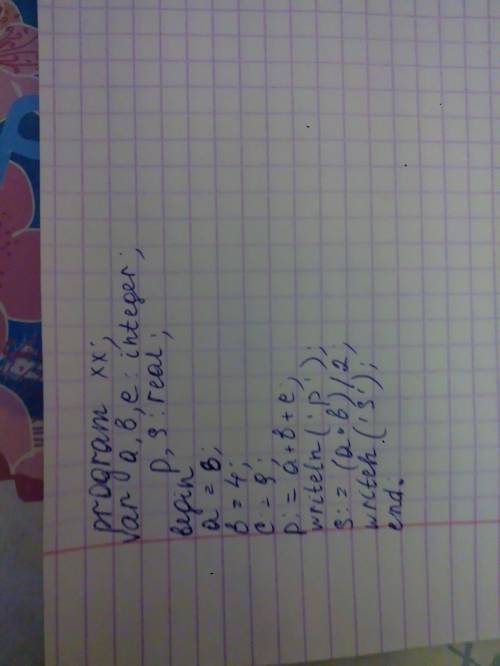 program xx;
Var a, b, e : integer;
p, s : real;
begin
a = 8;
b = 4;
c := 9;
p := a + b + e;
writeln ('p');
s := (a * b) / 2;
writeln ('s');
end.